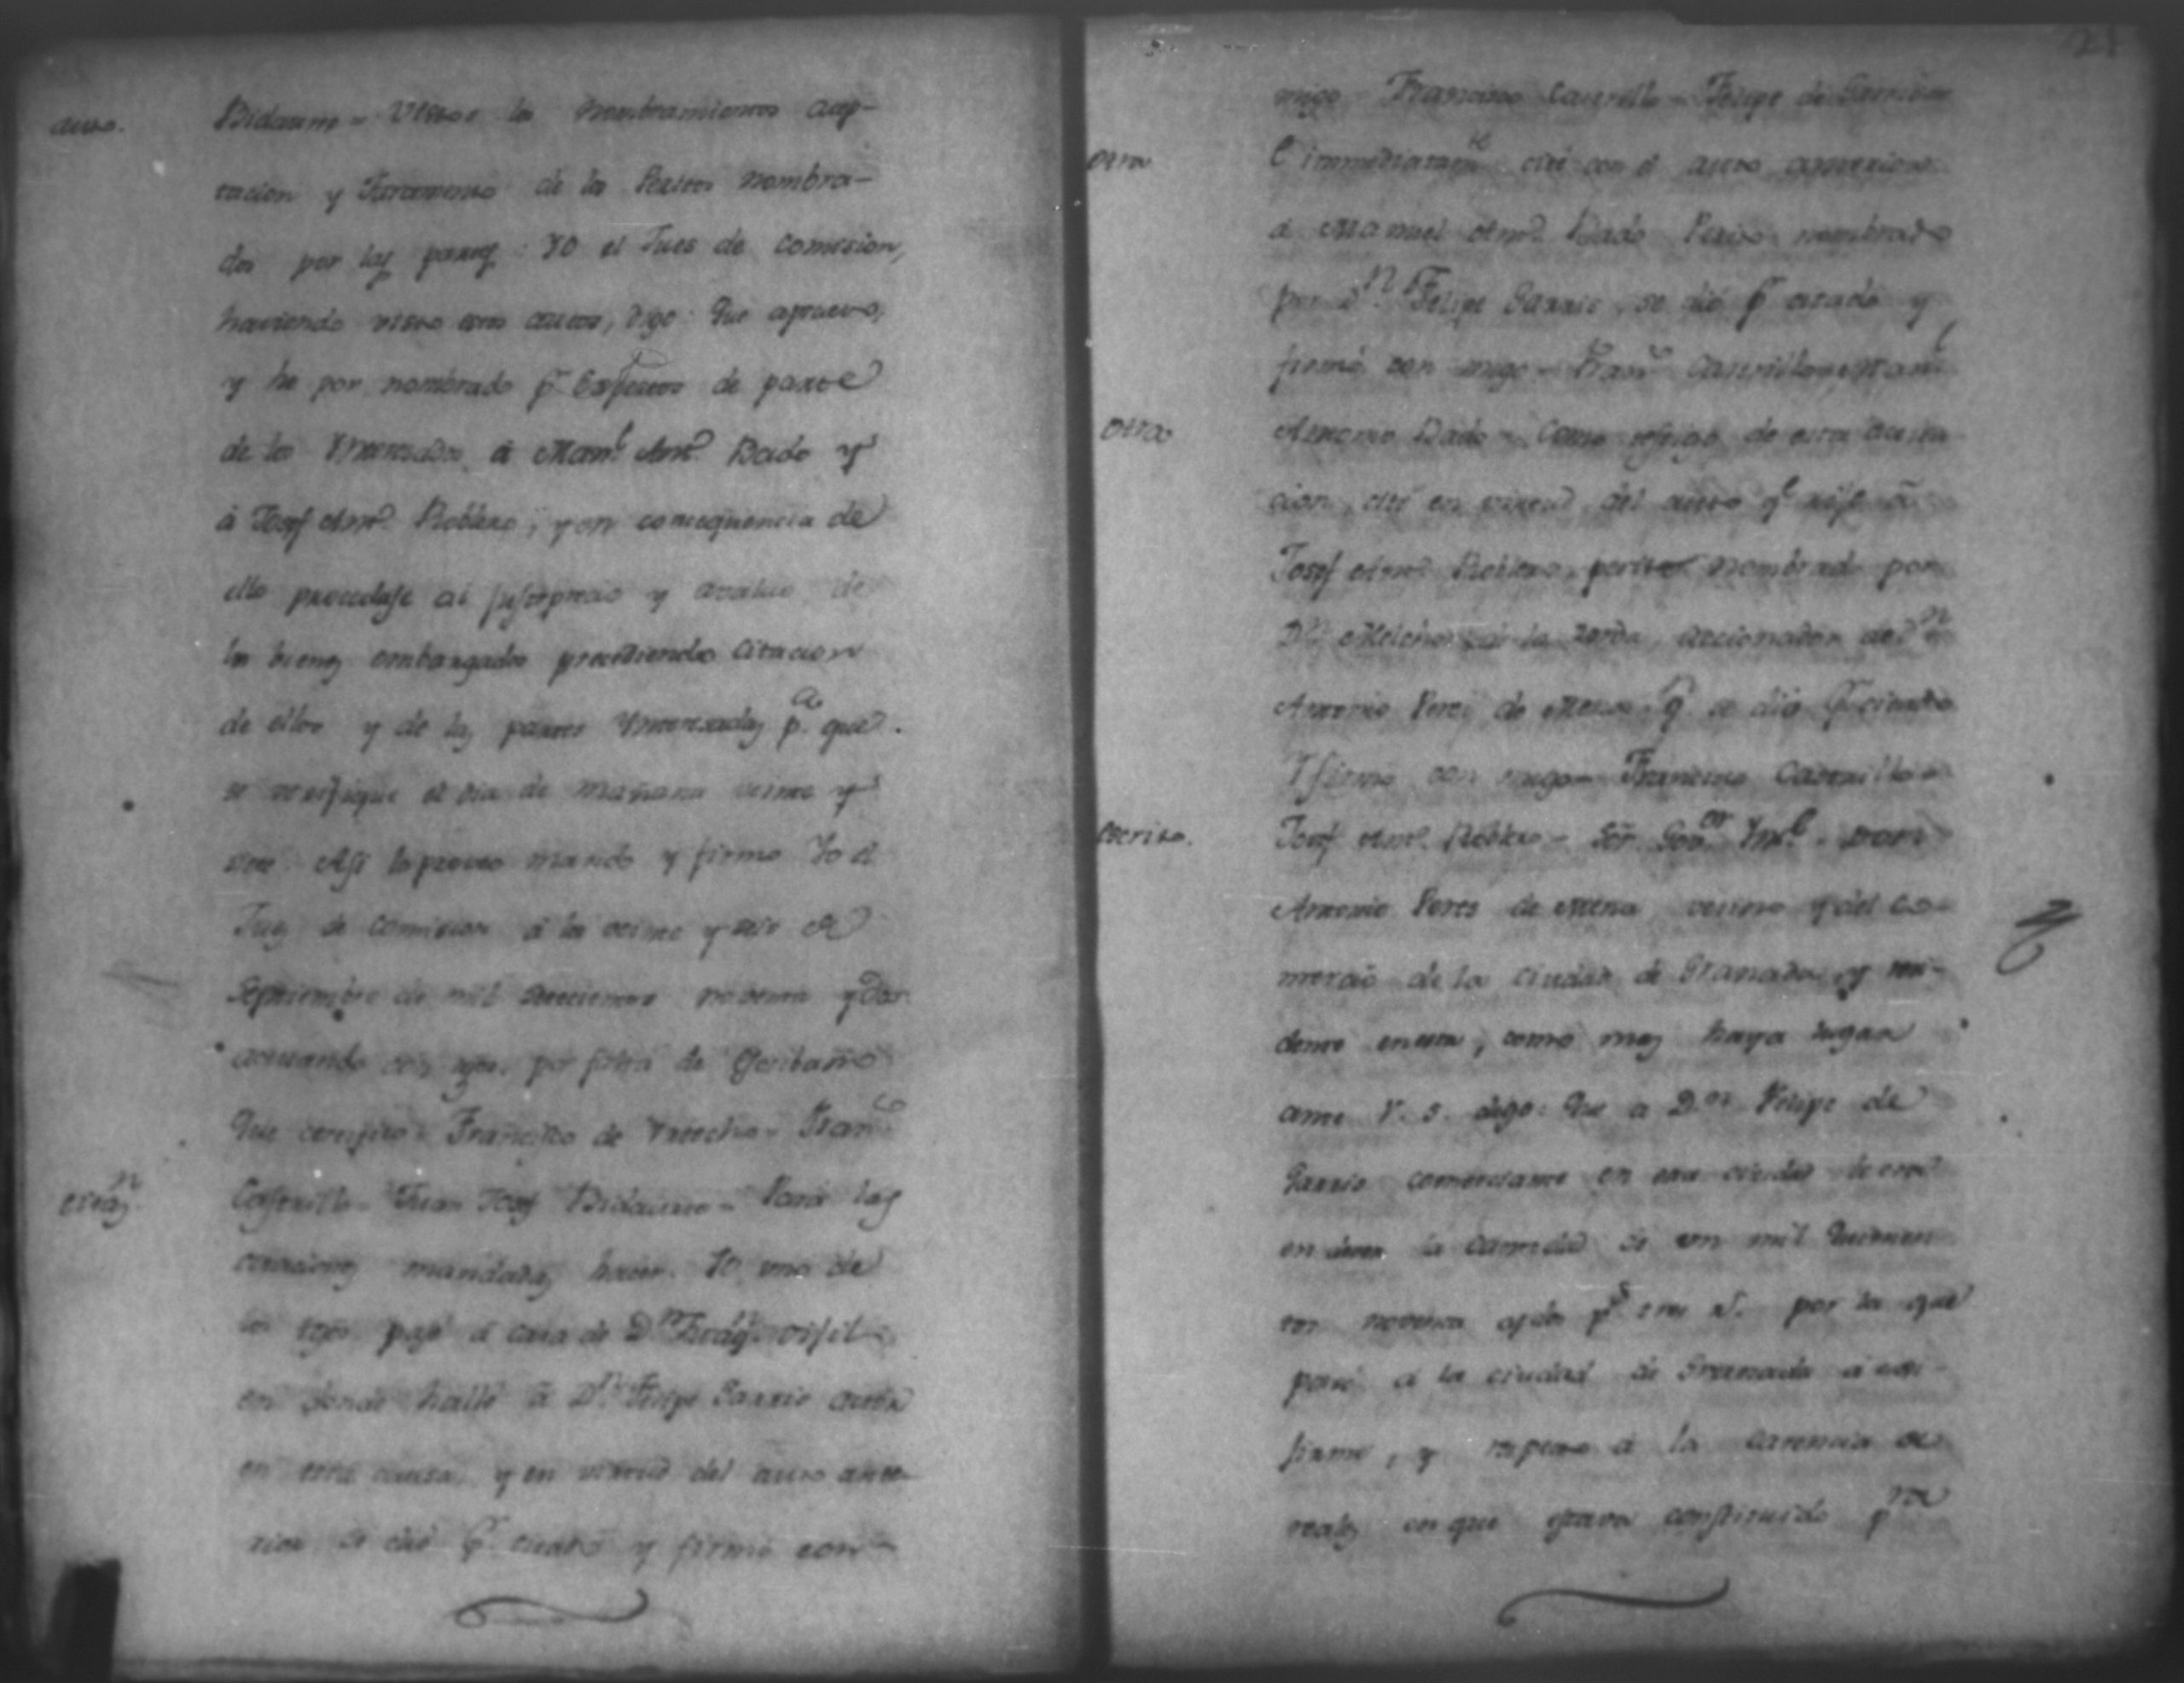 auto.
Bidaurre - Vistos los Nombramientos acep-
tacion y Juramento de los Peritos nombra-
dos por las partes: Yo el Jues de Comision,
haviendo visto estos autos, digo: Que apruevo,
y he por nombrado pr Expertos de parte
de los Ynteresados á Manl Anto Bado y
á Josef Anto Roblero, y en consequencia de
ello procedase al justiprecio y avaluo de
los bienes embargados precediendo citacion
de ellos y de las partes Ynteresadas pa que
se verifique el dia de mañana veinte y
siete. Asi lo proveo mando y firmo Yo el
Jues de Comision á los veinte y seis de
Septiembre de mil setecientos noventa y dos
actuando con tgos. por falta de Escribano
Que certifico - Francisco de - Franco
Citaon
Castrillo - Juan Josef Bidaurre - Para las
citaciones mandadas hacer. Yo uno de
los tgos pasé á casa de Dn
en donde hallé á Dn Felipe Garrio actor
en esta causa, y en virtud del auto ante-
rior se dió pr citado y firmó con-
21
migo Francisco Castrillo - Felipe de Garrio
otra
E inmediatamte cité con el auto anterior
á Manuel Anto Bado Perito nombrado
por Dn Felipe Garrio, se dió pr citado y
firmó con migo - Franco Castrillo - Manl
otra
Antonio Bado - Como testigo de esta actua
cion, cité en virtud del auto qe rije á
Josef Anto Roblero, perito nombrado por
Dn Melchor de la Zerda, de Dn
Antonio Peres de Mena qe se dió pr citado
Y firmó con migo - Francisco Castrillo -
escrito.
Josef Anto Roblero - Sor Gouor Yntte Don
Antonio Peres de Mena vecino y del co-
mercio de la ciudad de Granada y resi-
dente en esta, como mas haya lugar
ante V. S. digo: Que a Dn Felipe de
Garrio comerciante en esta ciudad le era
en dever la cantidad de un mil quinien
tos noventa y dos ps tres rs. por la que
pasó á la ciudad de Granada á exi-
jirme, y respecto á la carencia de
reales en que estava constituido pra